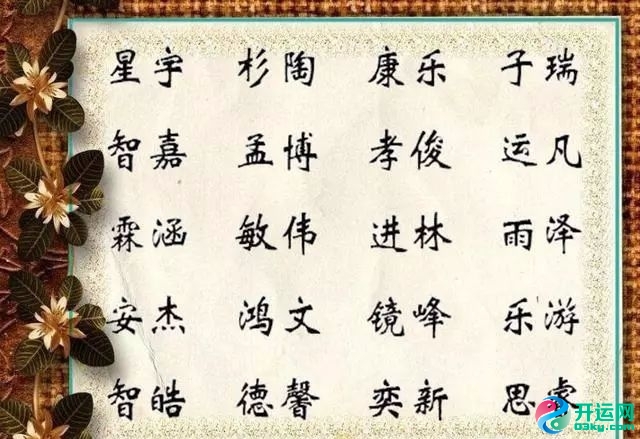 星宇 杉陶 康乐 子瑞
智嘉 孟博 孝俊 运凡
霖涵 敏伟 进林 雨泽
安杰 鸿文 镜峰 乐游
智皓 德馨 奕新 思
开运网
oaky.com